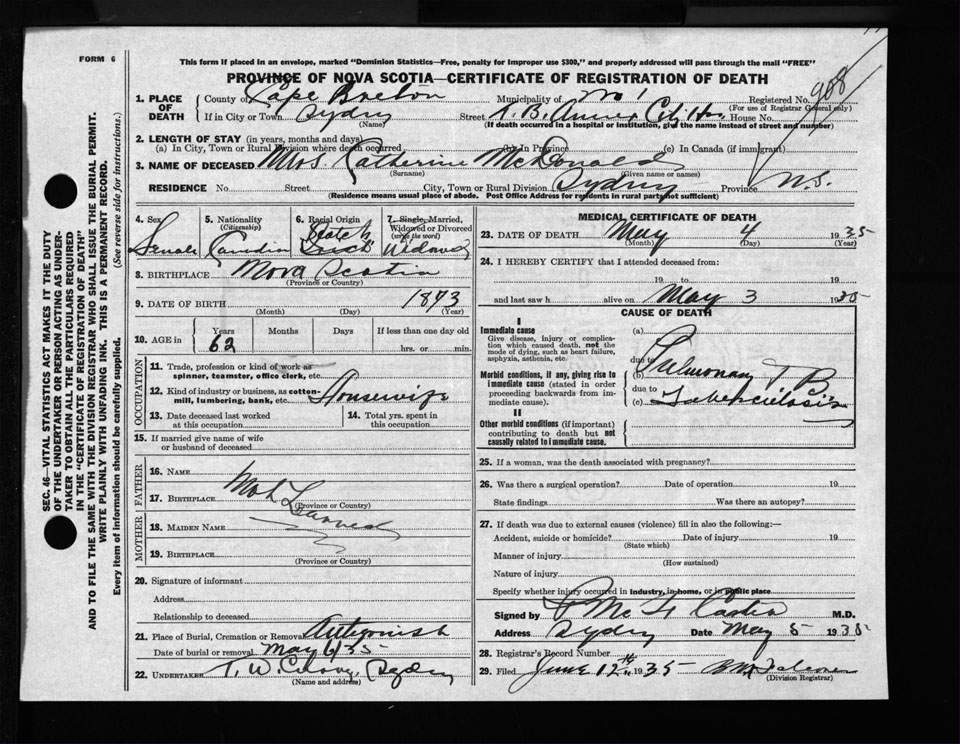 FORM 6
This form if placed in an envelope, marked "Dominion Statistics—Free, penalty for improper use $300," and properly addressed will pass through the mail "FREE"
PROVINCE OF NOVA SCOTIA—CERTIFICATE OF REGISTRATION OF DEATH
908
1. PLACE OF DEATH
County of Cape Breton Municipality of No 1 Registered No.
(For use of Registrar General only)
If in City or Town Sydney Street T. B. Annex City House No.
(Name) (If death occurred in a hospital or institution, give the name instead of street and number)
2. LENGTH OF STAY (in years, months and days)
(a) In City, Town or Rural Division where death occurred (b) In Province (c) In Canada (if immigrant)
3. NAME OF DECEASED Mrs. Katherine McDonald
(Surname) (Given name or names)
RESIDENCE No. Street City, Town or Rural Division Sydney Province N.S.
(Residence means usual place of abode. Post Office Address for residents in rural parts not sufficient)
SEC. 46—VITAL STATISTICS ACT MAKES IT THE DUTY
OF THE UNDERTAKER OR PERSON ACTING AS UNDER-
TAKER TO OBTAIN ALL THE PARTICULARS REQUIRED
IN THE "CERTIFICATE OF REGISTRATION OF DEATH"
AND TO FILE THE SAME WITH THE DIVISION REGISTRAR WHO SHALL ISSUE THE BURIAL PERMIT.
WRITE PLAINLY WITH UNFADING INK. THIS IS A PERMANENT RECORD.
Every item of information should be carefully supplied. (See reverse side for instructions.)
4. Sex 5. Nationality (Citizenship) 6. Racial Origin 7. Single, Married, Widowed or Divorced (write the word)
Female Scotch Widowed
8. BIRTHPLACE Nova Scotia
(Province or Country)
9. DATE OF BIRTH 1873
(Month) (Day) (Year)
10. AGE in Years Months Days If less than one day old
62 hrs. or min.
OCCUPATION
11. Trade, profession or kind of work as spinner, teamster, office clerk, etc.
12. Kind of industry or business, as cotton-mill, lumbering, bank, etc. Housewife
13. Date deceased last worked at this occupation 14. Total yrs. spent in this occupation
15. If married give name of wife or husband of deceased
FATHER
16. NAME
17. BIRTHPLACE Not Learned
(Province or Country)
MOTHER
18. MAIDEN NAME
19. BIRTHPLACE
(Province or Country)
20. Signature of informant
Address
Relationship to deceased
21. Place of Burial, Cremation or Removal Antigonish
Date of burial or removal May 6/35
22. UNDERTAKER T. W. Sydney
(Name and address)
MEDICAL CERTIFICATE OF DEATH
23. DATE OF DEATH May 4 1935
(Month) (Day) (Year)
24. I HEREBY CERTIFY that I attended deceased from:
19 to 19
and last saw h alive on May 3 1935
CAUSE OF DEATH
I
Immediate cause (a)
Give disease, injury or complication which caused death, not the mode of dying, such as heart failure, asphyxia, asthenia, etc.
due to
Morbid conditions, if any, giving rise to immediate cause (stated in order proceeding backwards from immediate cause).
(b) Pulmonary T. B.
due to
(c) Tuberculosis
II
Other morbid conditions (if important) contributing to death but not causally related to immediate cause.
25. If a woman, was the death associated with pregnancy?
26. Was there a surgical operation? Date of operation 19
State findings Was there an autopsy?
27. If death was due to external causes (violence) fill in also the following:—
Accident, suicide or homicide? Date of injury 19
(State which)
Manner of injury
(How sustained)
Nature of injury
Specify whether injury occurred in industry, in home, or in public place
Signed by M.D.
Address Sydney Date May 5 1935
28. Registrar's Record Number
29. Filed June 12th 1935
(Division Registrar)